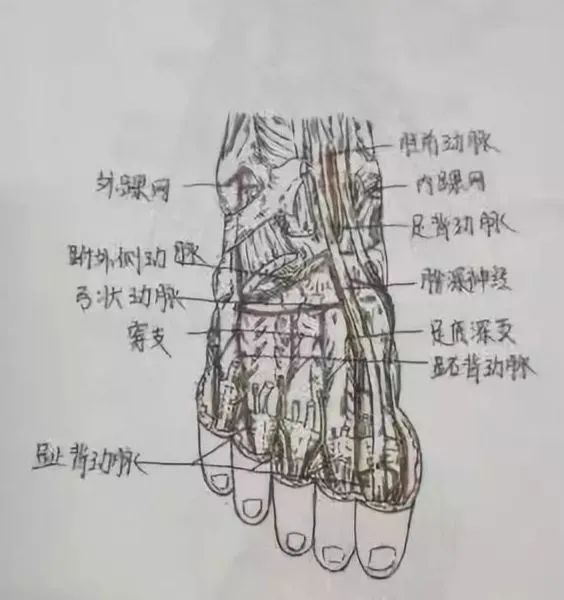 胫前动脉
外踝网
内踝网
足背动脉
跗外侧动脉
腓深神经
弓状动脉
穿支
足底深支
跖背动脉
趾背动脉